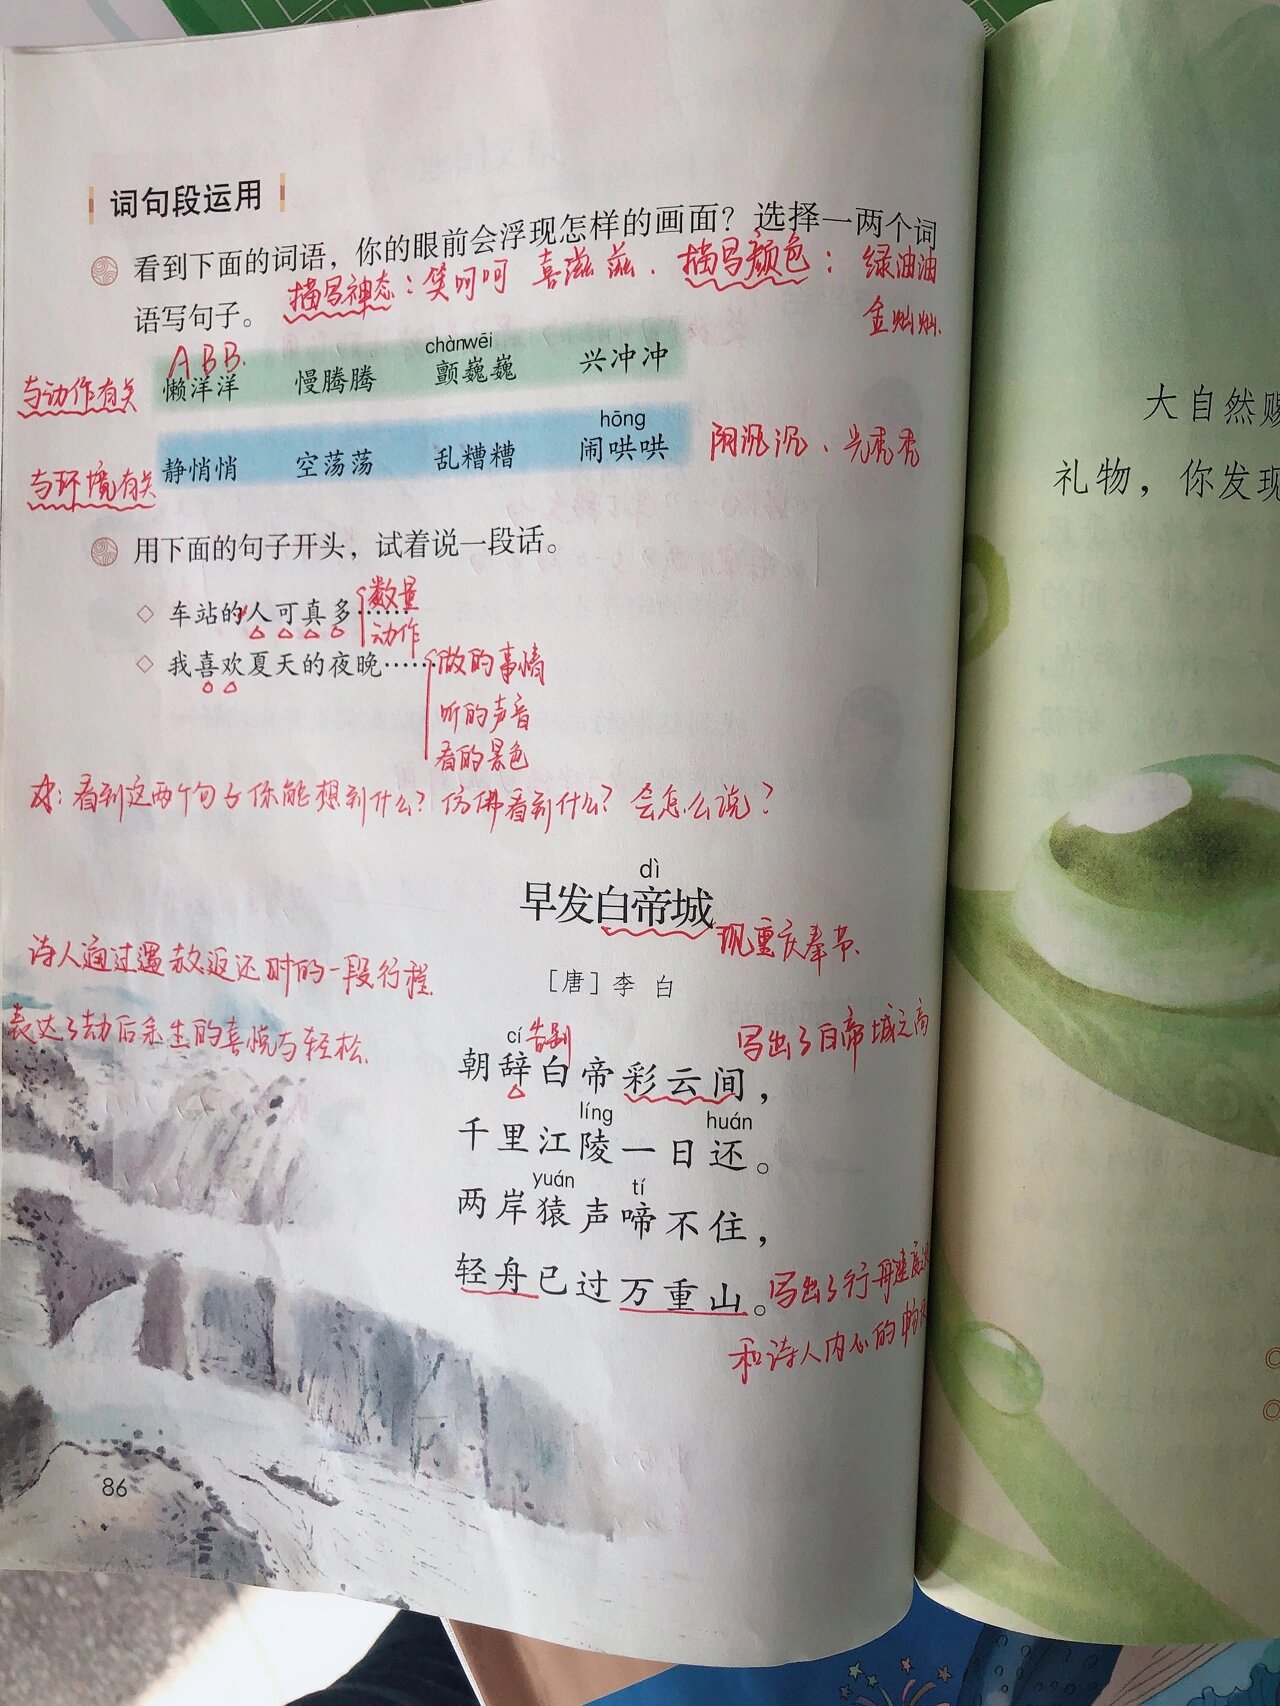 词句段运用
看到下面的词语，你的眼前会浮现怎样的画面？选择一两个词
语写句子。
描写神态：笑呵呵 喜滋滋、描写颜色：绿油油
金灿灿、
ABB.
chànwēi
与动作有关
懒洋洋 慢腾腾 颤巍巍 兴冲冲
hōng
与环境有关
静悄悄 空荡荡 乱糟糟 闹哄哄
阴沉沉、光秃秃
用下面的句子开头，试着说一段话。
◇ 车站的人可真多……
数量
动作
◇ 我喜欢夏天的夜晚……
做的事情
听的声音
看的景色
看到这两个句子你能想到什么？仿佛看到什么？会怎么说？
dì
早发白帝城
现重庆奉节
［唐］李 白
诗人通过遇赦返还时的一段行程
表达了劫后余生的喜悦与轻松
cí 告别
写出了白帝城之高
朝辞白帝彩云间，
líng huán
千里江陵一日还。
yuán tí
两岸猿声啼不住，
轻舟已过万重山。
写出了行舟速度
和诗人内心的
86
大自然赐
礼物，你发现